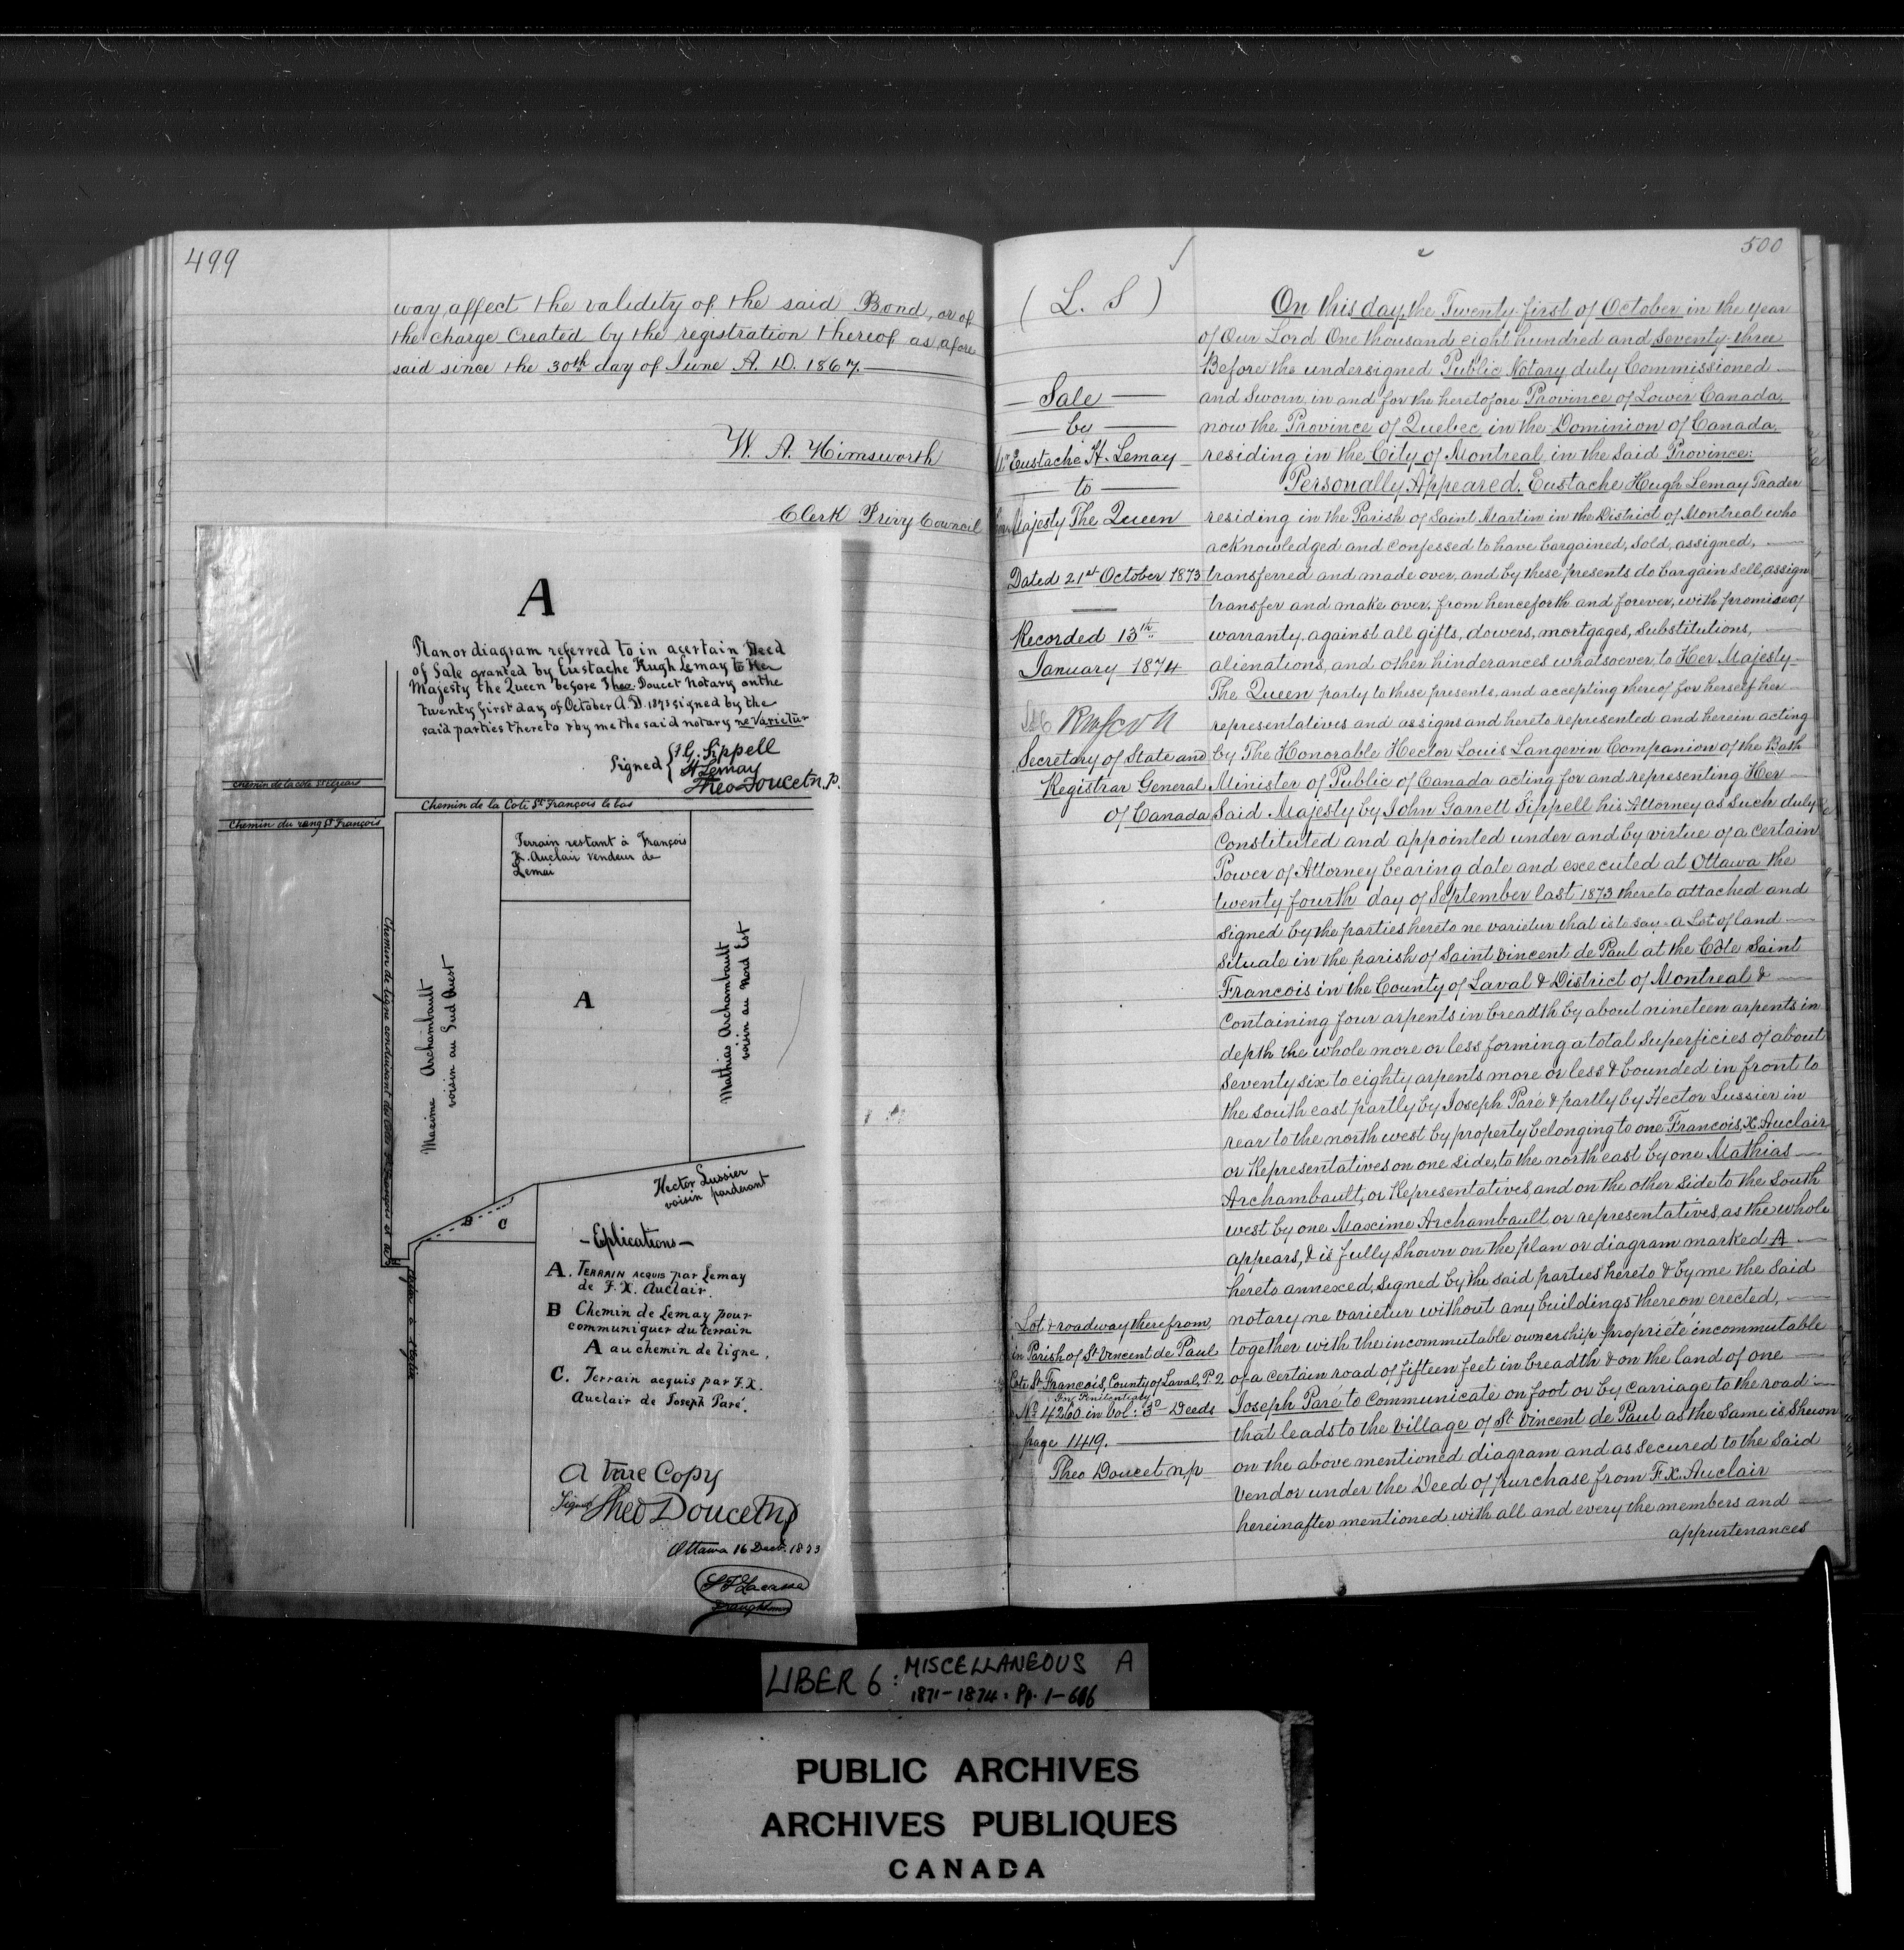 499
way, affect the validity of the said Bond, or of
the charge created by the registration thereof as afore
said since the 30th day of June A. D. 1867.
W. A. Himsworth
Clerk Privy Council
A
Plan or diagram referred to in a certain Deed
of Sale granted by Eustache Hugh Lemay to Her
Majesty the Queen before Theo. Doucet Notary on the
twenty first day of October A.D. 1873 signed by the
said parties thereto & by me the said notary ne Varietur
Signed
J G. Sippell
H Lemay
Theo Doucet n.p.
Chemin de la Cote St François le bas
Chemin du rang St François
Terrain restant à François
X. Auclair vendeur de
Lemai
Maxime Archambault
voisin au Sud Ouest
A
Mathias Archambault
voisin au Nord Est
Hector Lussier
voisin pardevant
B
C
- Eplications -
A. Terrain acquis par Lemay
de F. X. Auclair.
B Chemin de Lemay pour
communiquer du terrain
A au chemin de ligne.
C. Terrain acquis par F.X.
Auclair de Joseph Paré.
A true Copy
Signed Theo Doucet np
Ottawa 16 Decb. 1873
500
( L. S )
Sale
by
Mr Eustache H. Lemay
to
Her Majesty The Queen
Dated 21st October 1873
Recorded 13th
January 1874
Secretary of State and
Registrar General
of Canada
Lot & roadway therefrom,
in Parish of St Vincent de Paul
Cote St Francois, County of Laval, P. 2
For Penitentiary
No 4260 in Vol: 30 Deeds
page 1419.
Theo Doucet np
On this day, the Twenty first of October in the year
of Our Lord One thousand eight hundred and seventy-three
Before the undersigned Public Notary duly Commissioned
and Sworn, in and for the heretofore Province of Lower Canada,
now the Province of Quebec, in the Dominion of Canada,
residing in the City of Montreal, in the Said Province:
Personally Appeared. Eustache Hugh Lemay Trader
residing in the Parish of Saint Martin in the District of Montreal who
acknowledged and confessed to have bargained, sold, assigned,
transferred and made over, and by these presents do bargain sell, assign
transfer and make over, from henceforth and forever, with promise of
warranty, against all gifts, dowers, mortgages, substitutions,
alienations, and other hinderances whatsoever, to Her Majesty
The Queen party to these presents, and accepting thereof for herself her
representatives and assigns and hereto represented and herein acting
by The Honorable Hector Louis Langevin Companion of the Bath
Minister of Public of Canada acting for and representing Her
Said Majesty by John Garrett Sippell his Attorney as such duly
Constituted and appointed under and by virtue of a certain
Power of Attorney bearing date and executed at Ottawa the
twenty fourth day of September last 1873 thereto attached and
signed by the parties hereto ne varietur that is to say - a Lot of land
situate in the parish of Saint Vincent de Paul at the Côte Saint
Francois in the County of Laval & District of Montreal &
Containing four arpents in breadth by about nineteen arpents in
depth the whole more or less forming a total superficies of about
Seventy six to eighty arpents more or less & bounded in front to
the south east partly by Joseph Paré & partly by Hector Lussier in
rear to the north west by property belonging to one Francois, X. Auclair
or Representatives on one side, to the north east by one Mathias
Archambault, or Representatives, and on the other side to the South
west by one Maxime Archambault, or representatives, as the whole
appears, & is fully shown on the plan or diagram marked A
hereto annexed, signed by the said parties hereto & by me the said
notary ne varietur without any buildings thereon erected,
together with the incommutable ownership, propriete incommutable
of a certain road of fifteen feet in breadth & on the land of one
Joseph Paré to communicate on foot or by carriage to the road
that leads to the village of St Vincent de Paul as the same is shewn
on the above mentioned diagram and as secured to the said
Vendor under the Deed of purchase from F. X. Auclair
hereinafter mentioned with all and every the members and
appurtenances
LIBER 6: MISCELLANEOUS A
1871-1874. Pp. 1-606
PUBLIC ARCHIVES
ARCHIVES PUBLIQUES
CANADA